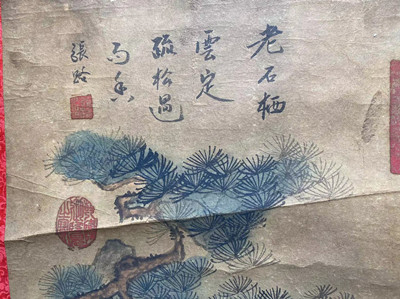 老石栖
雲定
疏松過
雨香
張路